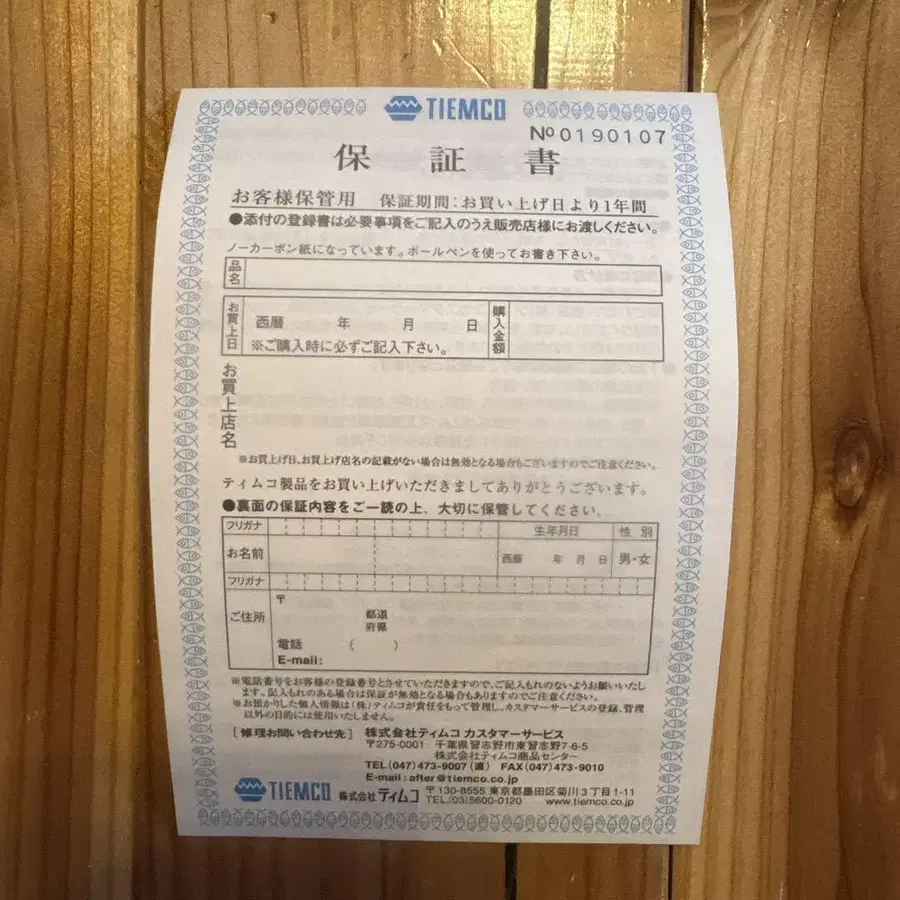 TIEMCO
No 0190107
保証書
お客様保管用 保証期間:お買い上げ日より1年間
●添付の登録書は必要事項をご記入のうえ販売店様にお渡しください。
ノーカーボン紙になっています。ボールペンを使ってお書き下さい。
品名
お買上日 西暦 年 月 日 購入金額
※ご購入時に必ずご記入下さい。
お買上店名
※お買上げ日、お買上げ店名の記載がない場合は無効となる場合もございますのでご注意ください。
ティムコ製品をお買い上げいただきましてありがとうございます。
●裏面の保証内容をご一読の上、大切に保管してください。
フリガナ 生年月日 性別
お名前 西暦 年 月 日 男・女
フリガナ
ご住所 〒
都道
府県
電話 ( )
E-mail:
※電話番号をお客様の登録番号とさせていただきますので、ご記入もれのないようお願いいたし
ます。記入もれのある場合は保証が無効となる場合もありますのでご注意ください。
※お預かりした個人情報は(株)ティムコが責任をもって管理し、カスタマーサービスの登録、管理
以外の目的には使用いたしません。
[修理お問い合わせ先] 株式会社ティムコ カスタマーサービス
〒275-0001 千葉県習志野市東習志野7-6-5
株式会社ティムコ商品センター
TEL(047)473-9007(直) FAX(047)473-9010
E-mail:after@tiemco.co.jp
TIEMCO 株式会社ティムコ 〒130-8555 東京都墨田区菊川3丁目1-11
TEL.(03)5600-0120 www.tiemco.co.jp